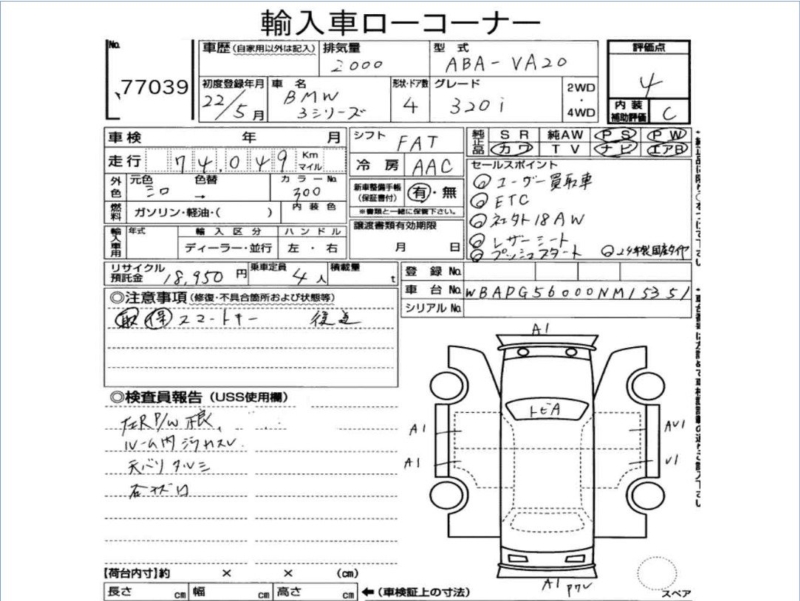 輸入車ローコーナー
No. 77039
車歴 (自家用以外は記入)
排気量 2000
型式 ABA-VA20
評価点 4
初度登録年月 22/5月
車名 BMW 3シリーズ
形状・ドア数 4
グレード 320i
2WD・4WD
内装補助評価 C
車検 年 月
シフト FAT
純正品 SR 純AW PS PW
カワ TV ナビ エアB
走行 74,049 Km マイル
冷房 AAC
セールスポイント
外色 元色 シロ 色替 → カラーNo. 300
新車整備手帳(保証書付) 有・無
※書類と一緒に保管下さい。
ユーザー買取車
ETC
社外18AW
レザーシート
プッシュスタート
燃料 ガソリン・軽油・( ) 内装色
譲渡書類有効期限 月 日
輸入車用 年式 輸入区分 ハンドル
ディーラー・並行 左・右
リサイクル預託金 18,950円 乗車定員 4人 積載量 t
登録No.
車台No. WBAPG56000NM15351
シリアルNo.
◎注意事項 (修復・不具合箇所および状態等)
取 得 スマートキー 後送
◎検査員報告 (USS使用欄)
ルーム内
天バリ タルミ
A1
トビA
A1 AU1
A1 U1
A1
【荷台内寸】約 × × (cm)
長さ cm 幅 cm 高さ cm ←(車検証上の寸法)
スペア